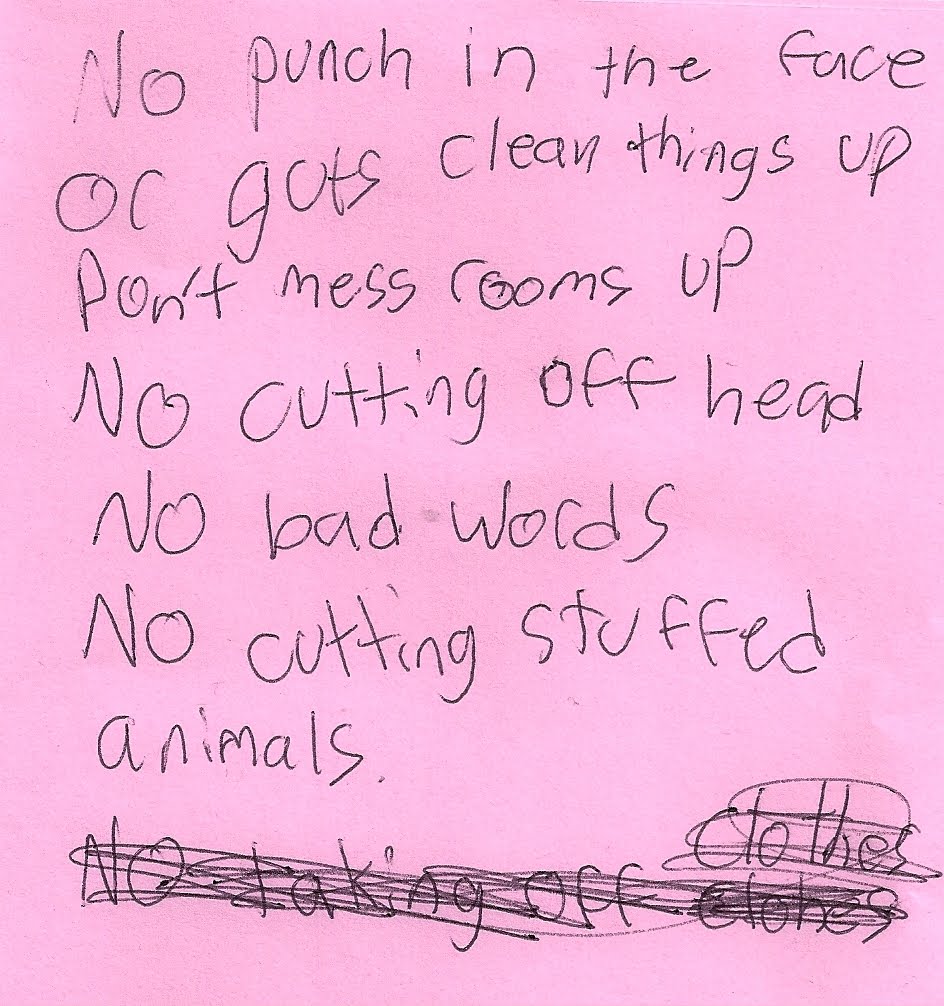 No punch in the face
or guts clean things up
Don't mess rooms up
No cutting off head
No bad words
No cutting stuffed
animals.
clothes
No taking off clohes